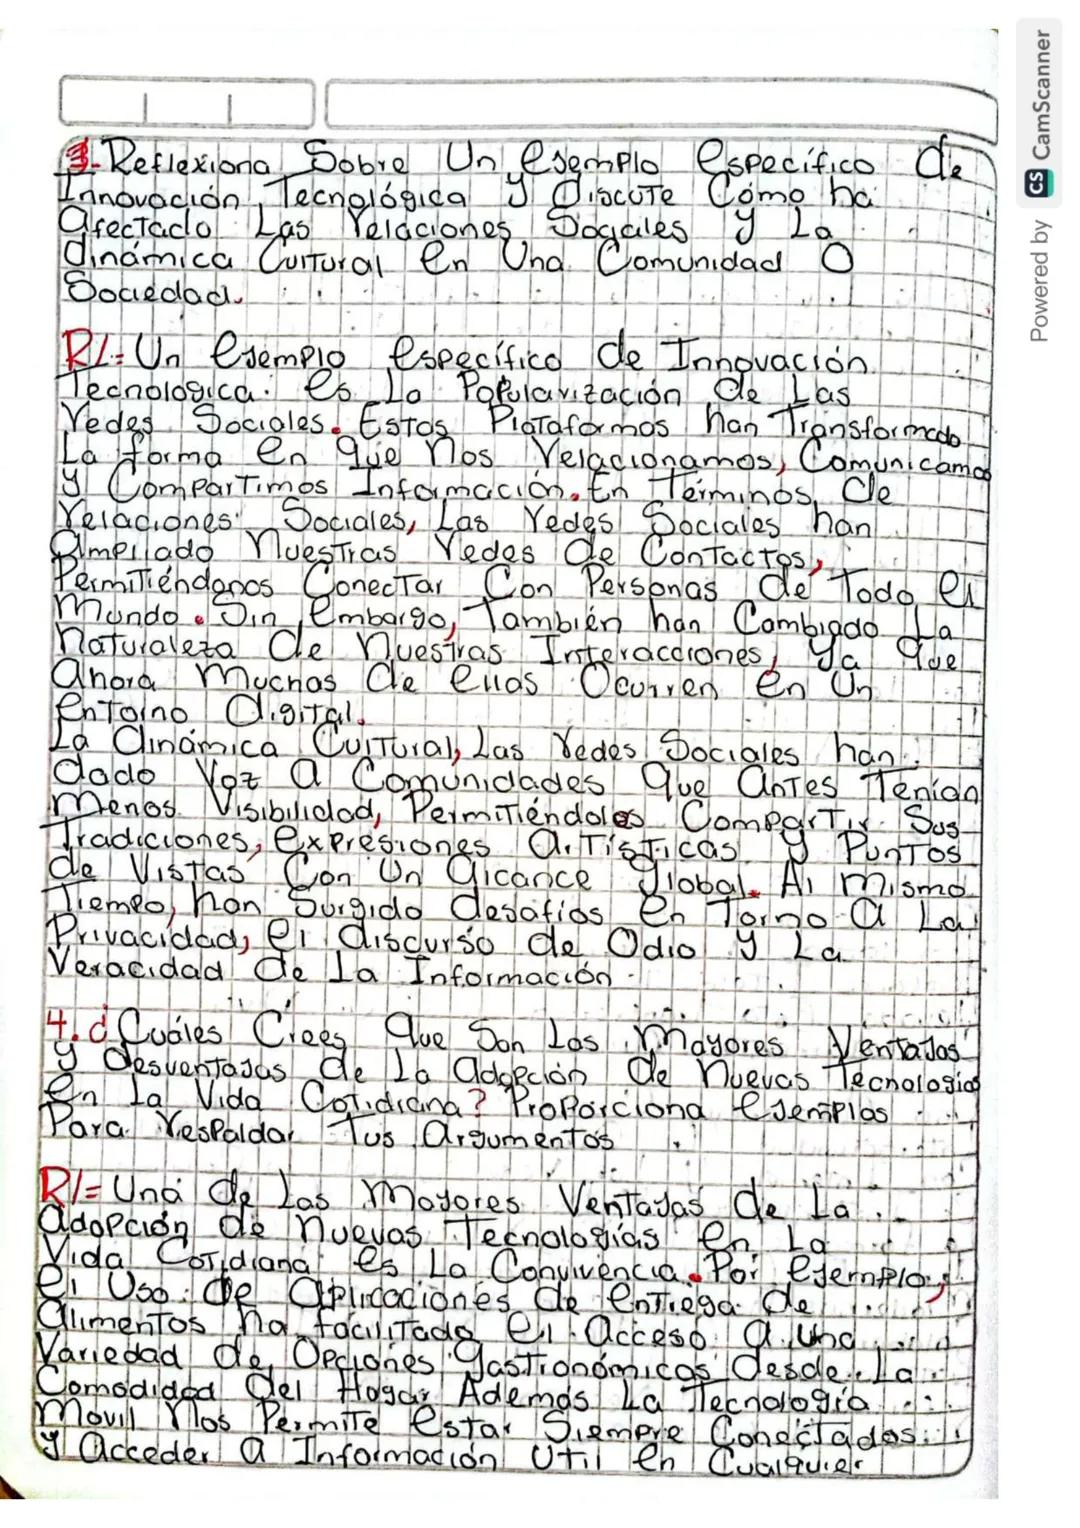 3- Reflexiona Sobre Un ejemplo específico de
Innovación Tecnológica y discute Cómo ha
afectado Las relaciones Sociales y La
dinámica Cultural en Una Comunidad O
Sociedad.
R/= Un ejemplo específico de Innovación
Tecnologica. es La Popularización de Las
redes Sociales. Estas Plataformas han Transformado
La forma en que nos relacionamos, Comunicamos
y Compartimos Información. En Términos de
relaciones Sociales, Las redes Sociales han
ampliado nuestras redes de Contactos,
Permitiéndonos Conectar Con Personas de Todo el
mundo. Sin embargo, También han Cambiado La
naturaleza de nuestras Interacciones, Ya que
ahora muchas de ellas Ocurren en Un
entorno digital.
La dinámica Cultural, Las redes Sociales han
dado Voz a Comunidades que antes Tenían
menos Visibilidad, Permitiéndoles Compartir Sus
Tradiciones, expresiones artísticas y Puntos
de Vistas Con Un alcance global. Al mismo
Tiempo, han Surgido desafíos en Torno a La
Privacidad, el discurso de Odio y La
Veracidad de La Información
4. ¿Cuáles Crees que Son Las mayores Ventajas
y desventajas de La adopción de nuevas Tecnologías
en La Vida Cotidiana? Proporciona ejemplos
Para respaldar Tus argumentos
R/= Una de Las mayores Ventajas de La
adopción de nuevas Tecnologías en La
Vida Cotidiana es La Convivencia. Por ejemplo,
el Uso de aplicaciones de entrega de
alimentos ha facilitado el acceso a una
Variedad de Opciones gastronómicas desde La
Comodidad del Hogar Además La Tecnología
movil nos Permite estar Siempre Conectados
y acceder a Información Util en Cualquier
Powered by CS CamScanner